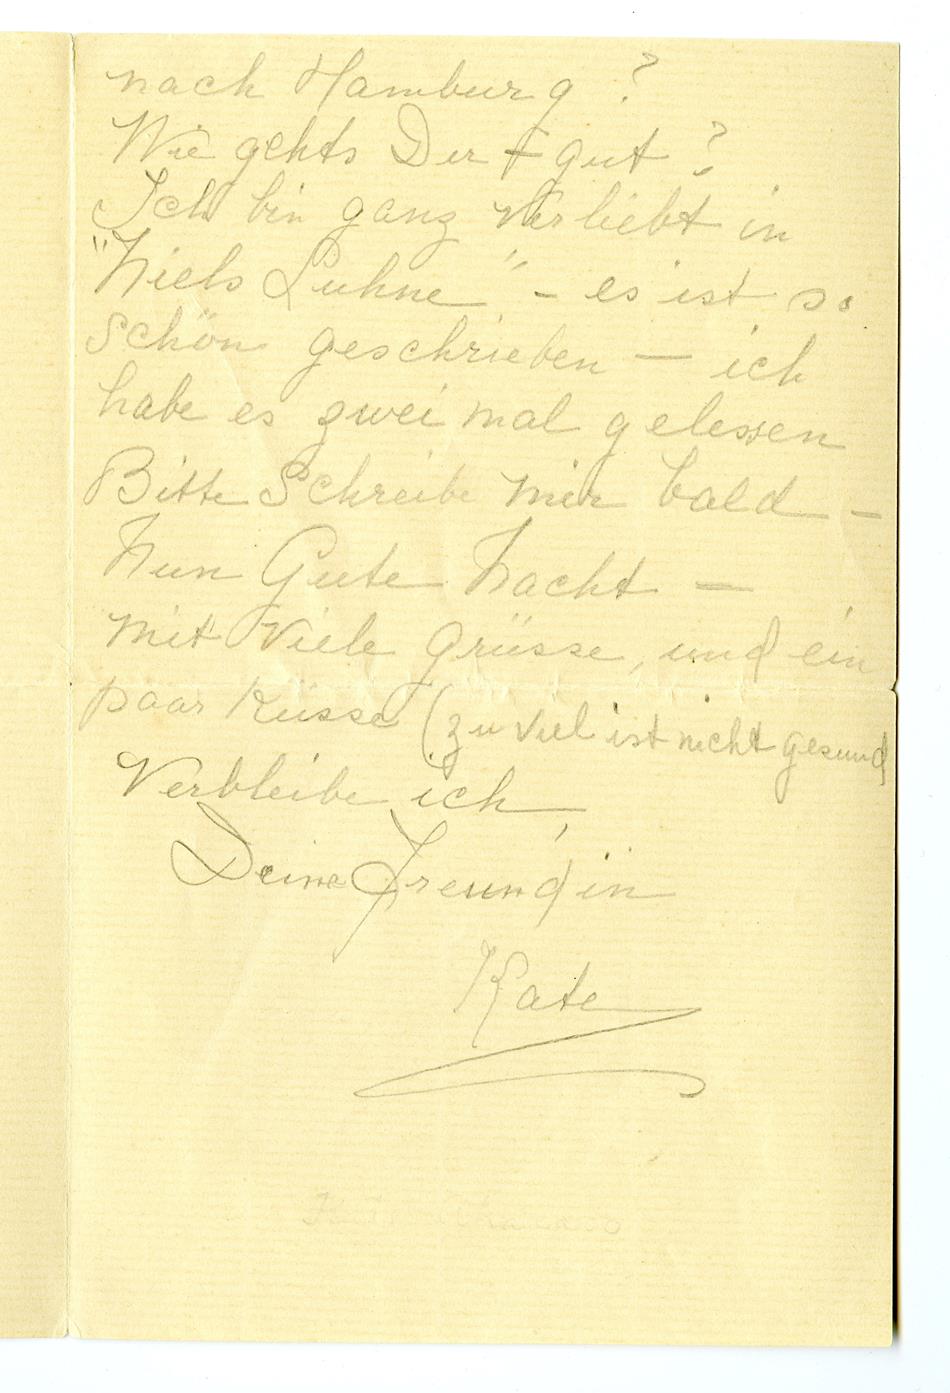 nach Hamburg ?
Wie gehts Dir – gut ?
Ich bin ganz verliebt in
"Niels Luhne" – es ist so
schön geschrieben — ich
habe es zwei mal gelessen
Bitte Schreibe mir bald –
Nun Gute Nacht –
mit Viele Grüsse, und ein
paar Küsse (zu viel ist nicht gesund
Verbleibe ich,
Deine Freundin
Kate